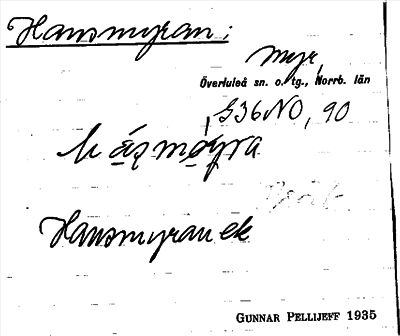 Hansmyran:
myr,
Överluleå sn. o. tg., Norrb. län
S36NO, 90
hásmọyra
Hansmyran ek
GUNNAR PELLIJEFF 1935